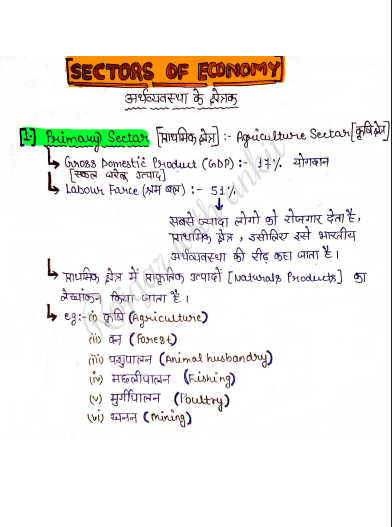 SECTORS OF ECONOMY
अर्थव्यवस्था के क्षेत्रक
1- Primary Sector [प्राथमिक क्षेत्र] :- Agriculture Sector [कृषि क्षेत्र]
Gross Domestic Product (GDP) :- 17% योगदान
[सकल घरेलू उत्पाद]
Labour Farce (श्रम बल) :- 51%
सबसे ज्यादा लोगो को रोजगार देता है,
प्राथमिक क्षेत्र, इसीलिए इसे भारतीय
अर्थव्यवस्था की रीढ़ कहा जाता है।
प्राथमिक क्षेत्र में प्राकृतिक उत्पादों [Naturals Products] का
लेखांकन किया जाता है।
eg:- (i) कृषि (Agriculture)
(ii) वन (Forest)
(iii) पशुपालन (Animal husbandry)
(iv) मछलीपालन (Fishing)
(v) मुर्गीपालन (Poultry)
(vi) खनन (Mining)